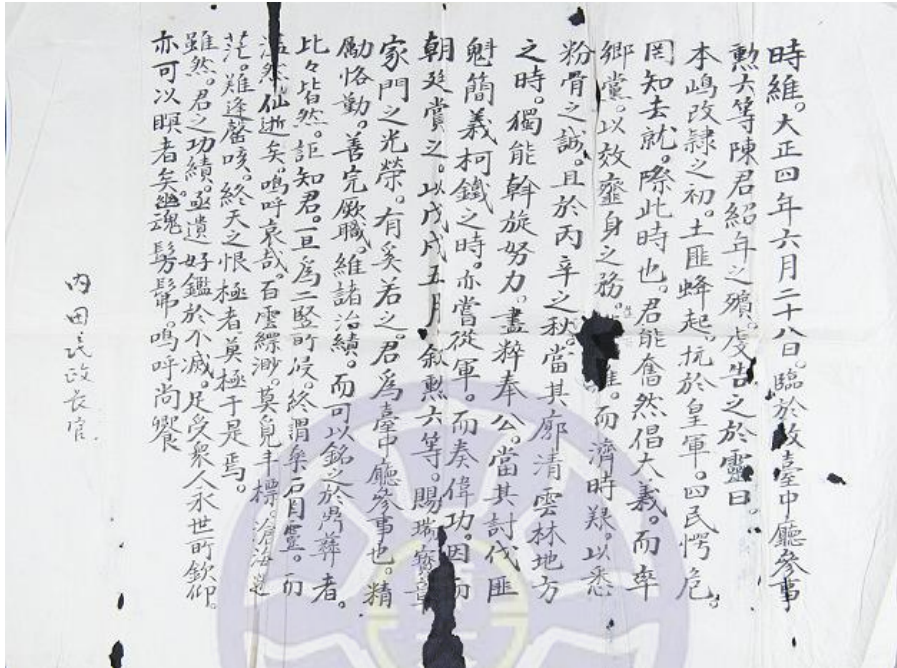 時維。大正四年六月二十八日。臨於故臺中廳參事
勲六等陳君紹年之殯。虔告之於靈曰。
本嶋改隸之初。土匪蜂起。抗於皇軍。四民愕危。
罔知去就。際此時也。君能奮然倡大義。而率
鄉黨。以效壅身之務。推。而濟時艱。以悉
粉骨之誠。且於丙辛之秋。當其廓清雲林地方
之時。獨能斡旋努力。盡粹奉公。當其討伐匪
魁簡義柯鐵之時。亦嘗從軍。而奏偉功。因而
朝廷賞之。以戊戌五月。敘勲六等。賜瑞寶章
家門之光榮。有奚若之。君為臺中廳參事也。精
勵恪勤。善完厥職。維諸治績。而可以銘之於鼎彝者。
比々皆然。詎知君。一旦為二竪所侵。終謂藥石罔靈。而
溘然仙逝矣。嗚呼哀哉。百雲縹渺。莫覓丰標。滄海
茫。難逢馨咳。終天之恨極者。莫極于是焉。
雖然。君之功績。亟遺好鑑於不滅。足受衆人永世所欽仰。
亦可以瞑者矣。幽魂髣髴。嗚呼尚饗
內田民政長官